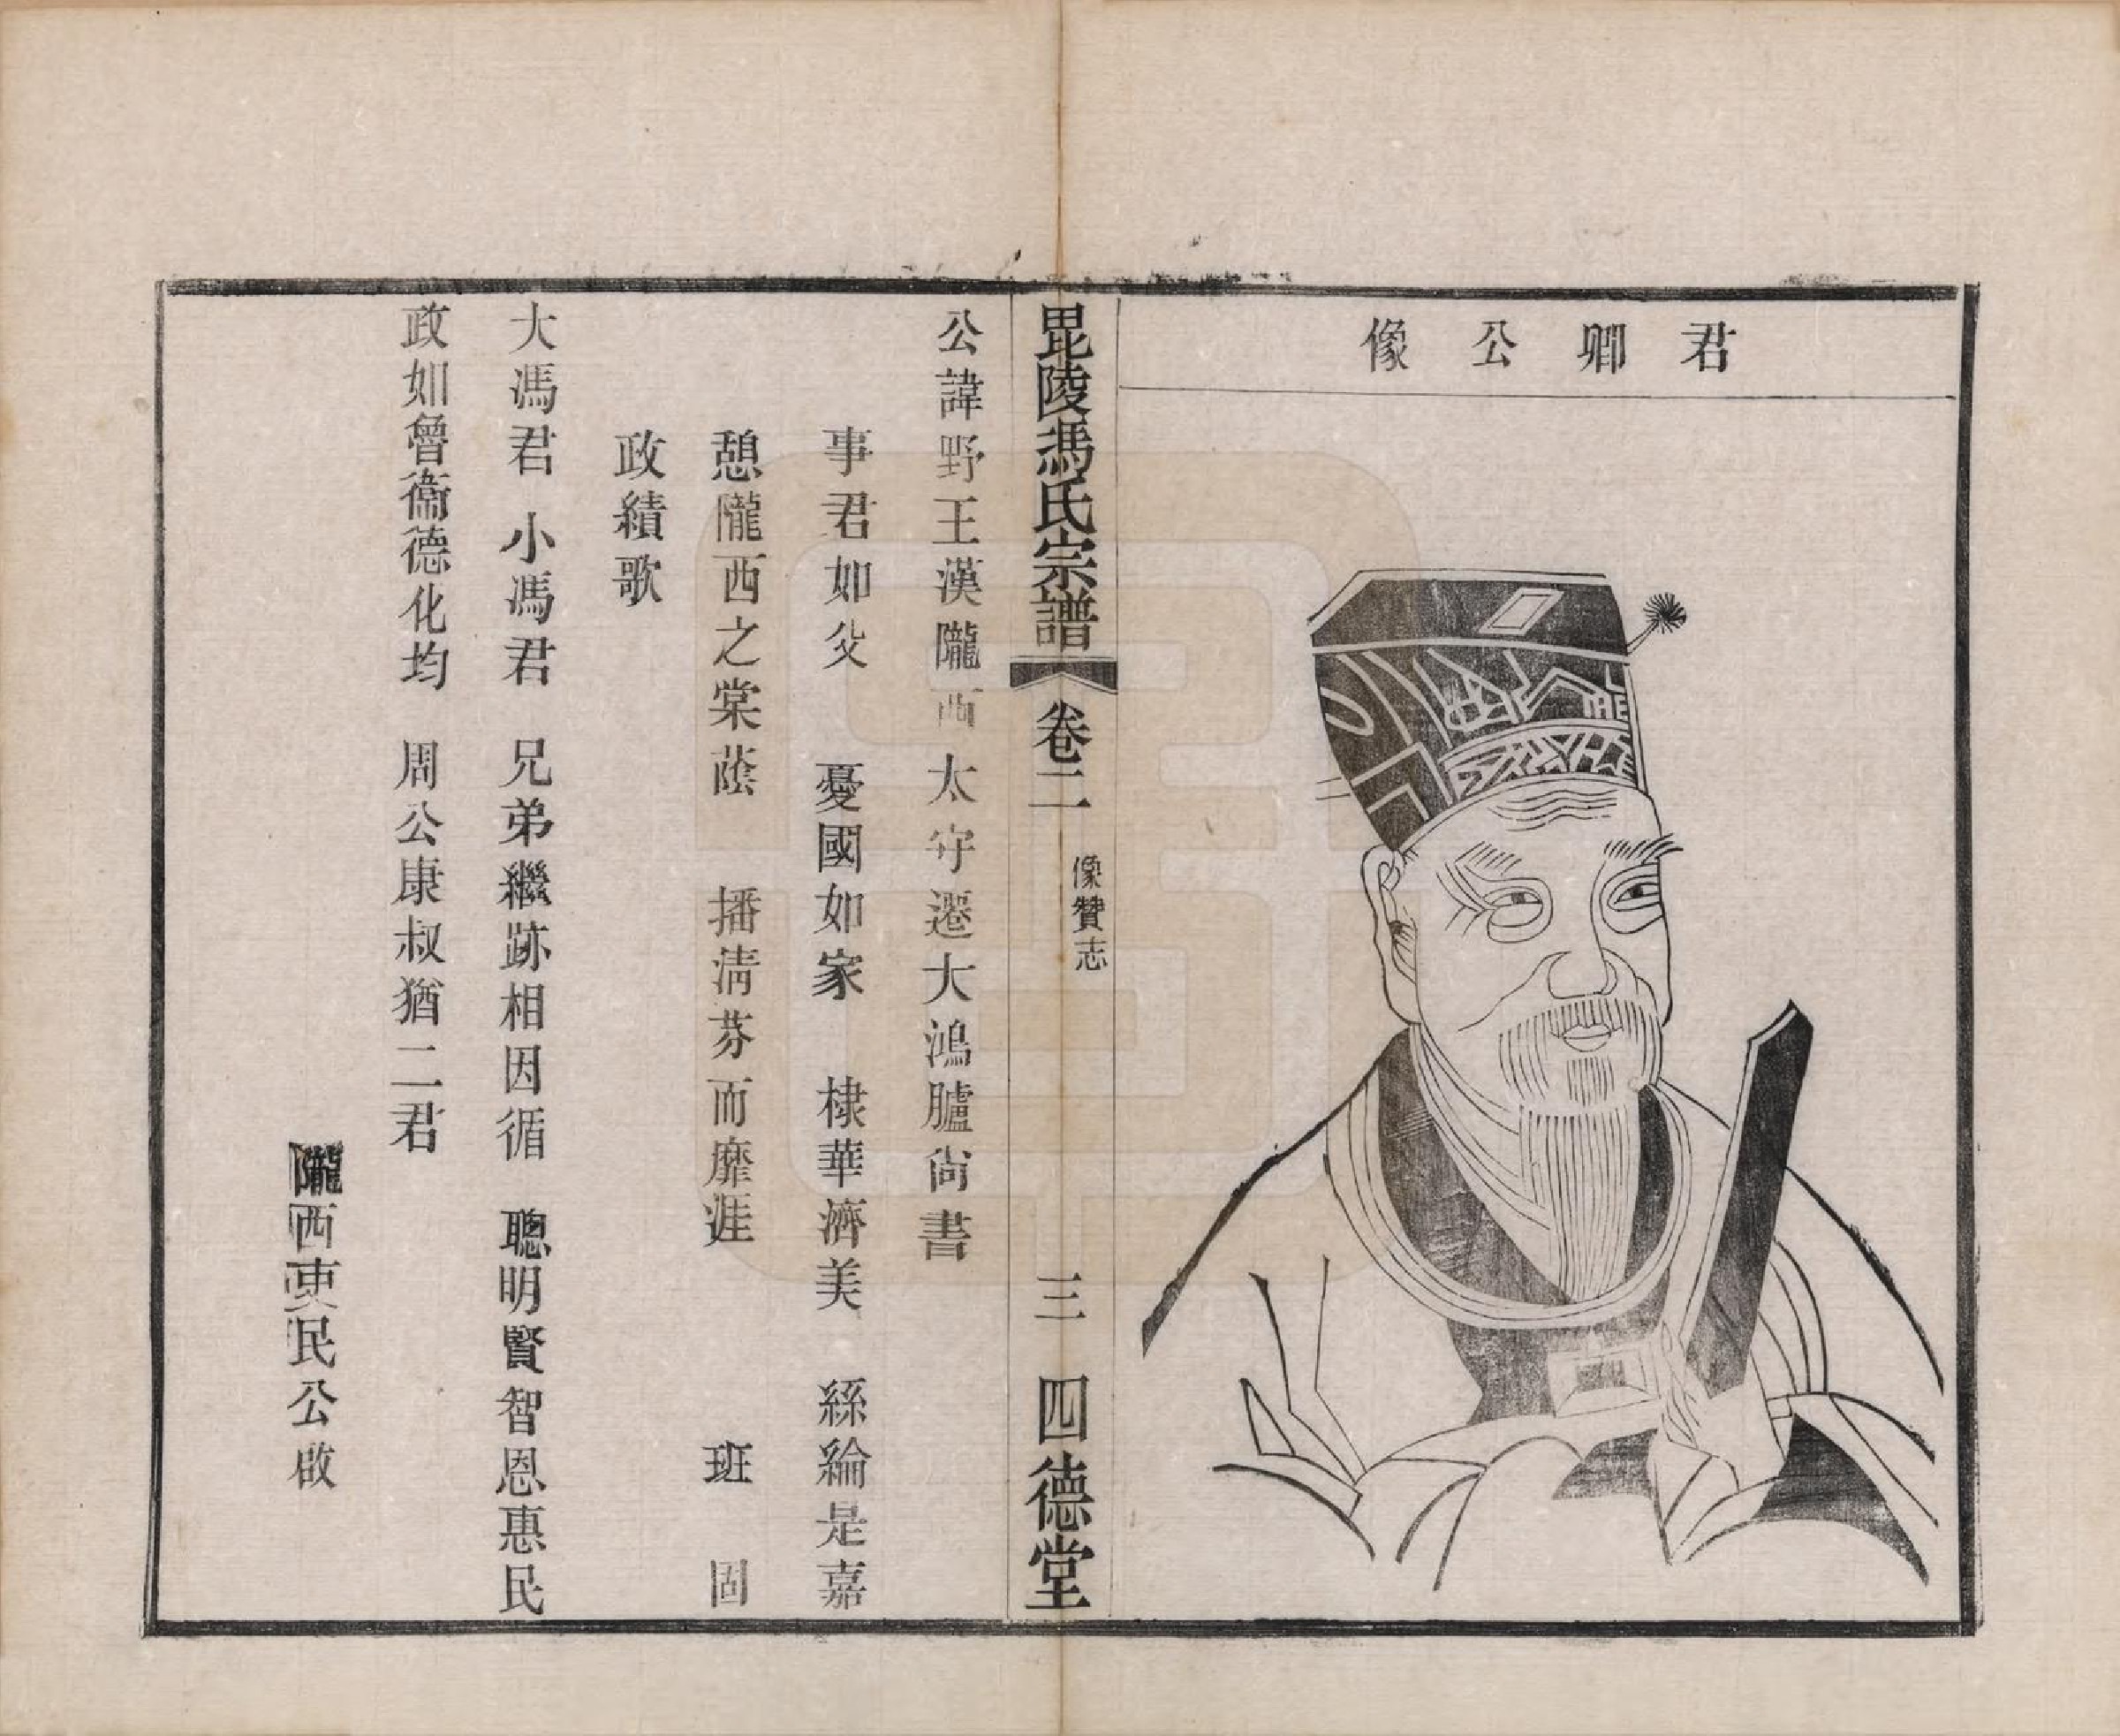 君卿公像
毘陵馮氏宗譜
卷二
像贊志
三
四德堂
公諱野王漢隴西太守遷大鴻臚尙書
事君如父　憂國如家　棣華濟美　絲綸是嘉
憩隴西之棠蔭　播淸芬而靡涯　班　固
政績歌
大馮君　小馮君　兄弟繼跡相因循　聰明賢智恩惠民
政如魯衞德化均　周公康叔猶二君
隴西吏民公啟